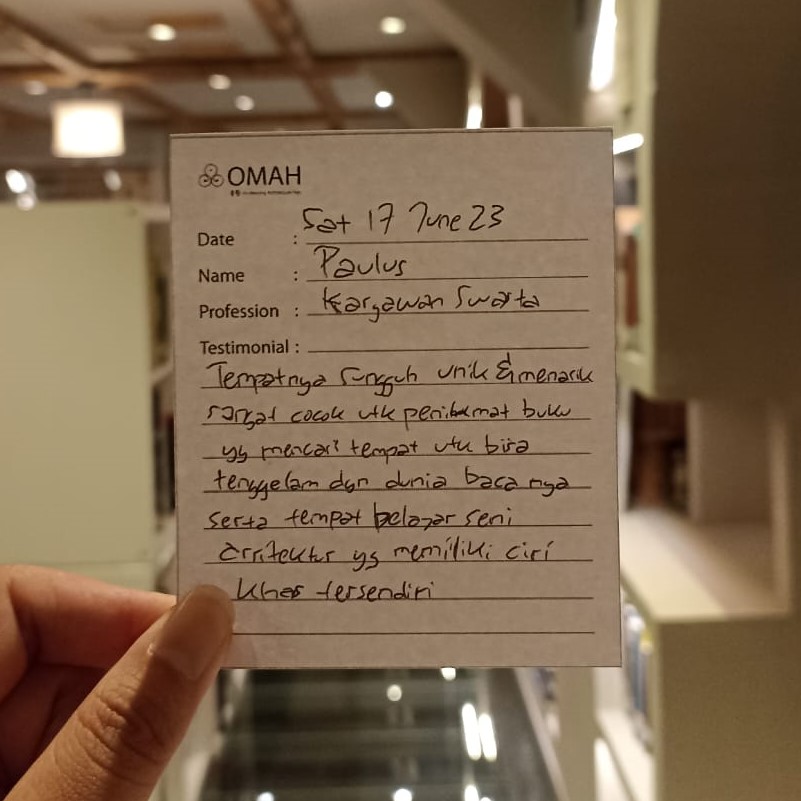 OMAH
Date : Sat 17 June 23
Name : Paulus
Profession : Karyawan Swasta
Testimonial :
Tempatnya sungguh unik & menarik
sangat cocok utk penikmat buku
yg mencari tempat utk bisa
tenggelam dgn dunia baca nya
serta tempat belajar seni
arsitektur yg memiliki ciri
khas tersendiri